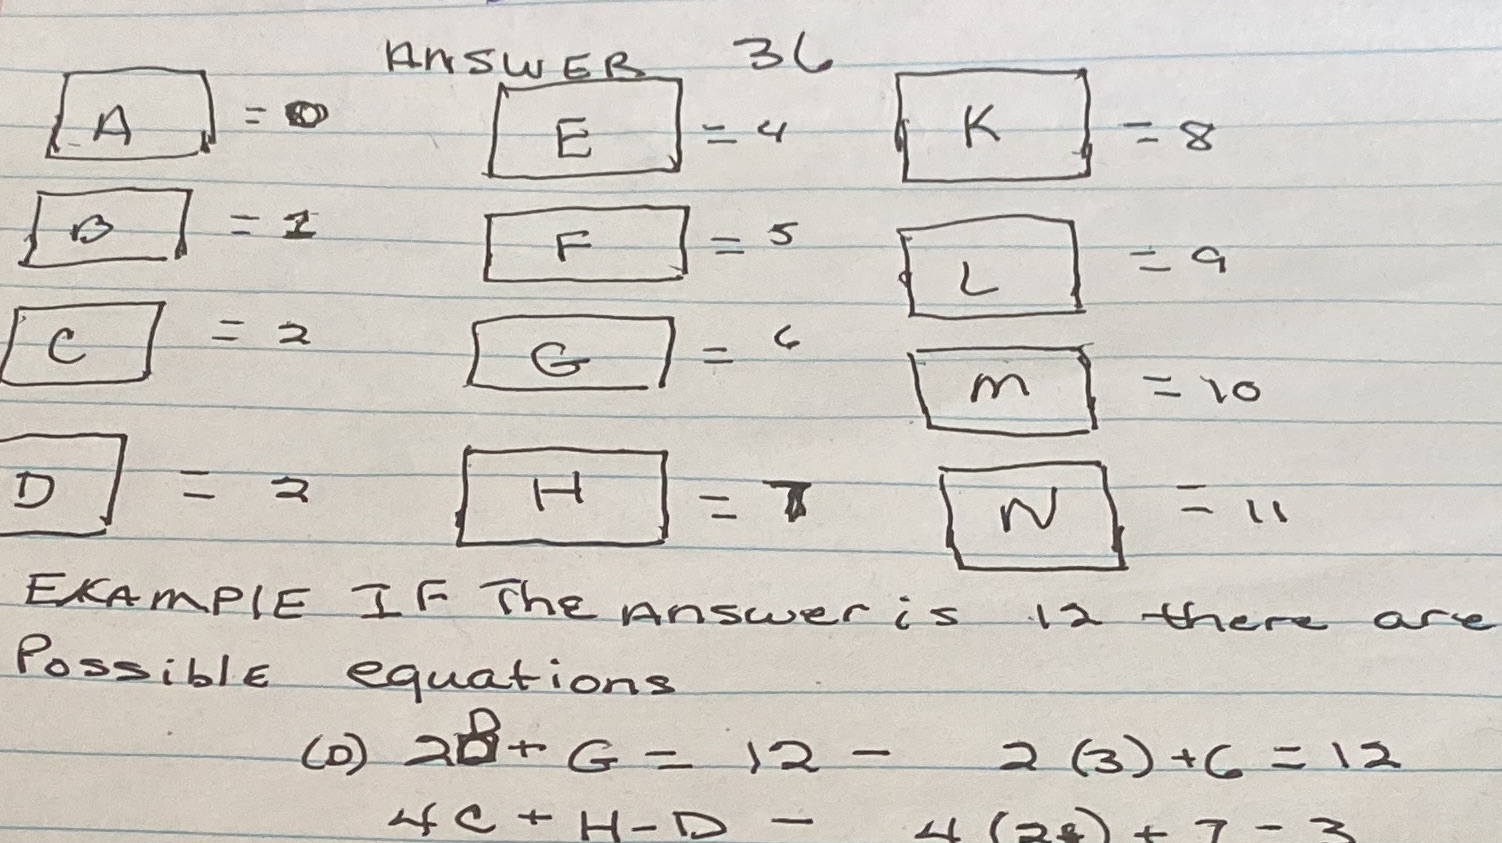 ANSWER 36
A = 0 E = 4 K = 8
B = 1 F = 5 L = 9
C = 2 G = 6 M = 10
D = 2 H = 7 N = 11
EXAMPLE IF The Answer is 12 there are
Possible equations
(D) 2D + G = 12 - 2 (3) + 6 = 12
4C + H - D - 4 (2) + 7 - 3